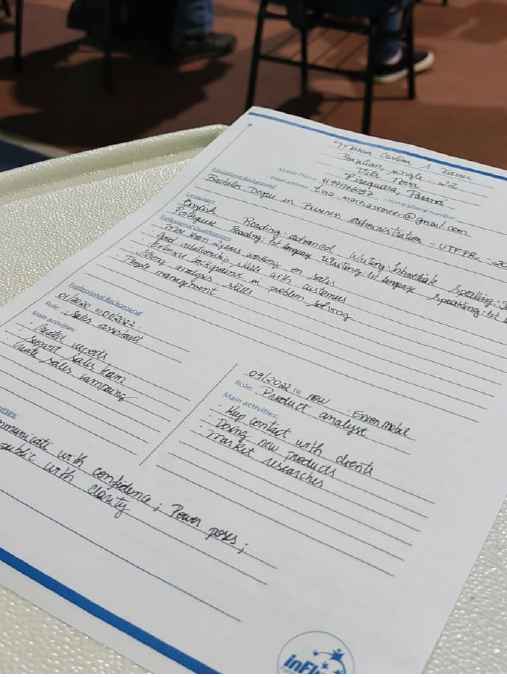 Brazilian, single, 22
Vila Nova
Piraquara, Paraná
Mobile Phone:
Email address:
Home phone number:
@gmail.com
Educational Background
Bachelor Degree in Business administration - UTFPR - 20
Languages
English Reading: advanced Writing: Intermediate Speaking:
Portuguese Reading: 1st language Writing: 1st language Speaking: 1st
Professional Qualifications
years working on sales
Good relationship skills with customers
background in problem solving
Strong analysis skills
People management
Professional Background
01/2020 to 01/2022
Role: Sales assistant
Main activities:
reports
support sales team
Create sales
09/2022 to now Exxon mobil
Role: Product analyst
Main activities:
Keep contact with clients
new products
market researches
ommunicate with confidence; Power poses;
public with clarity
inFl